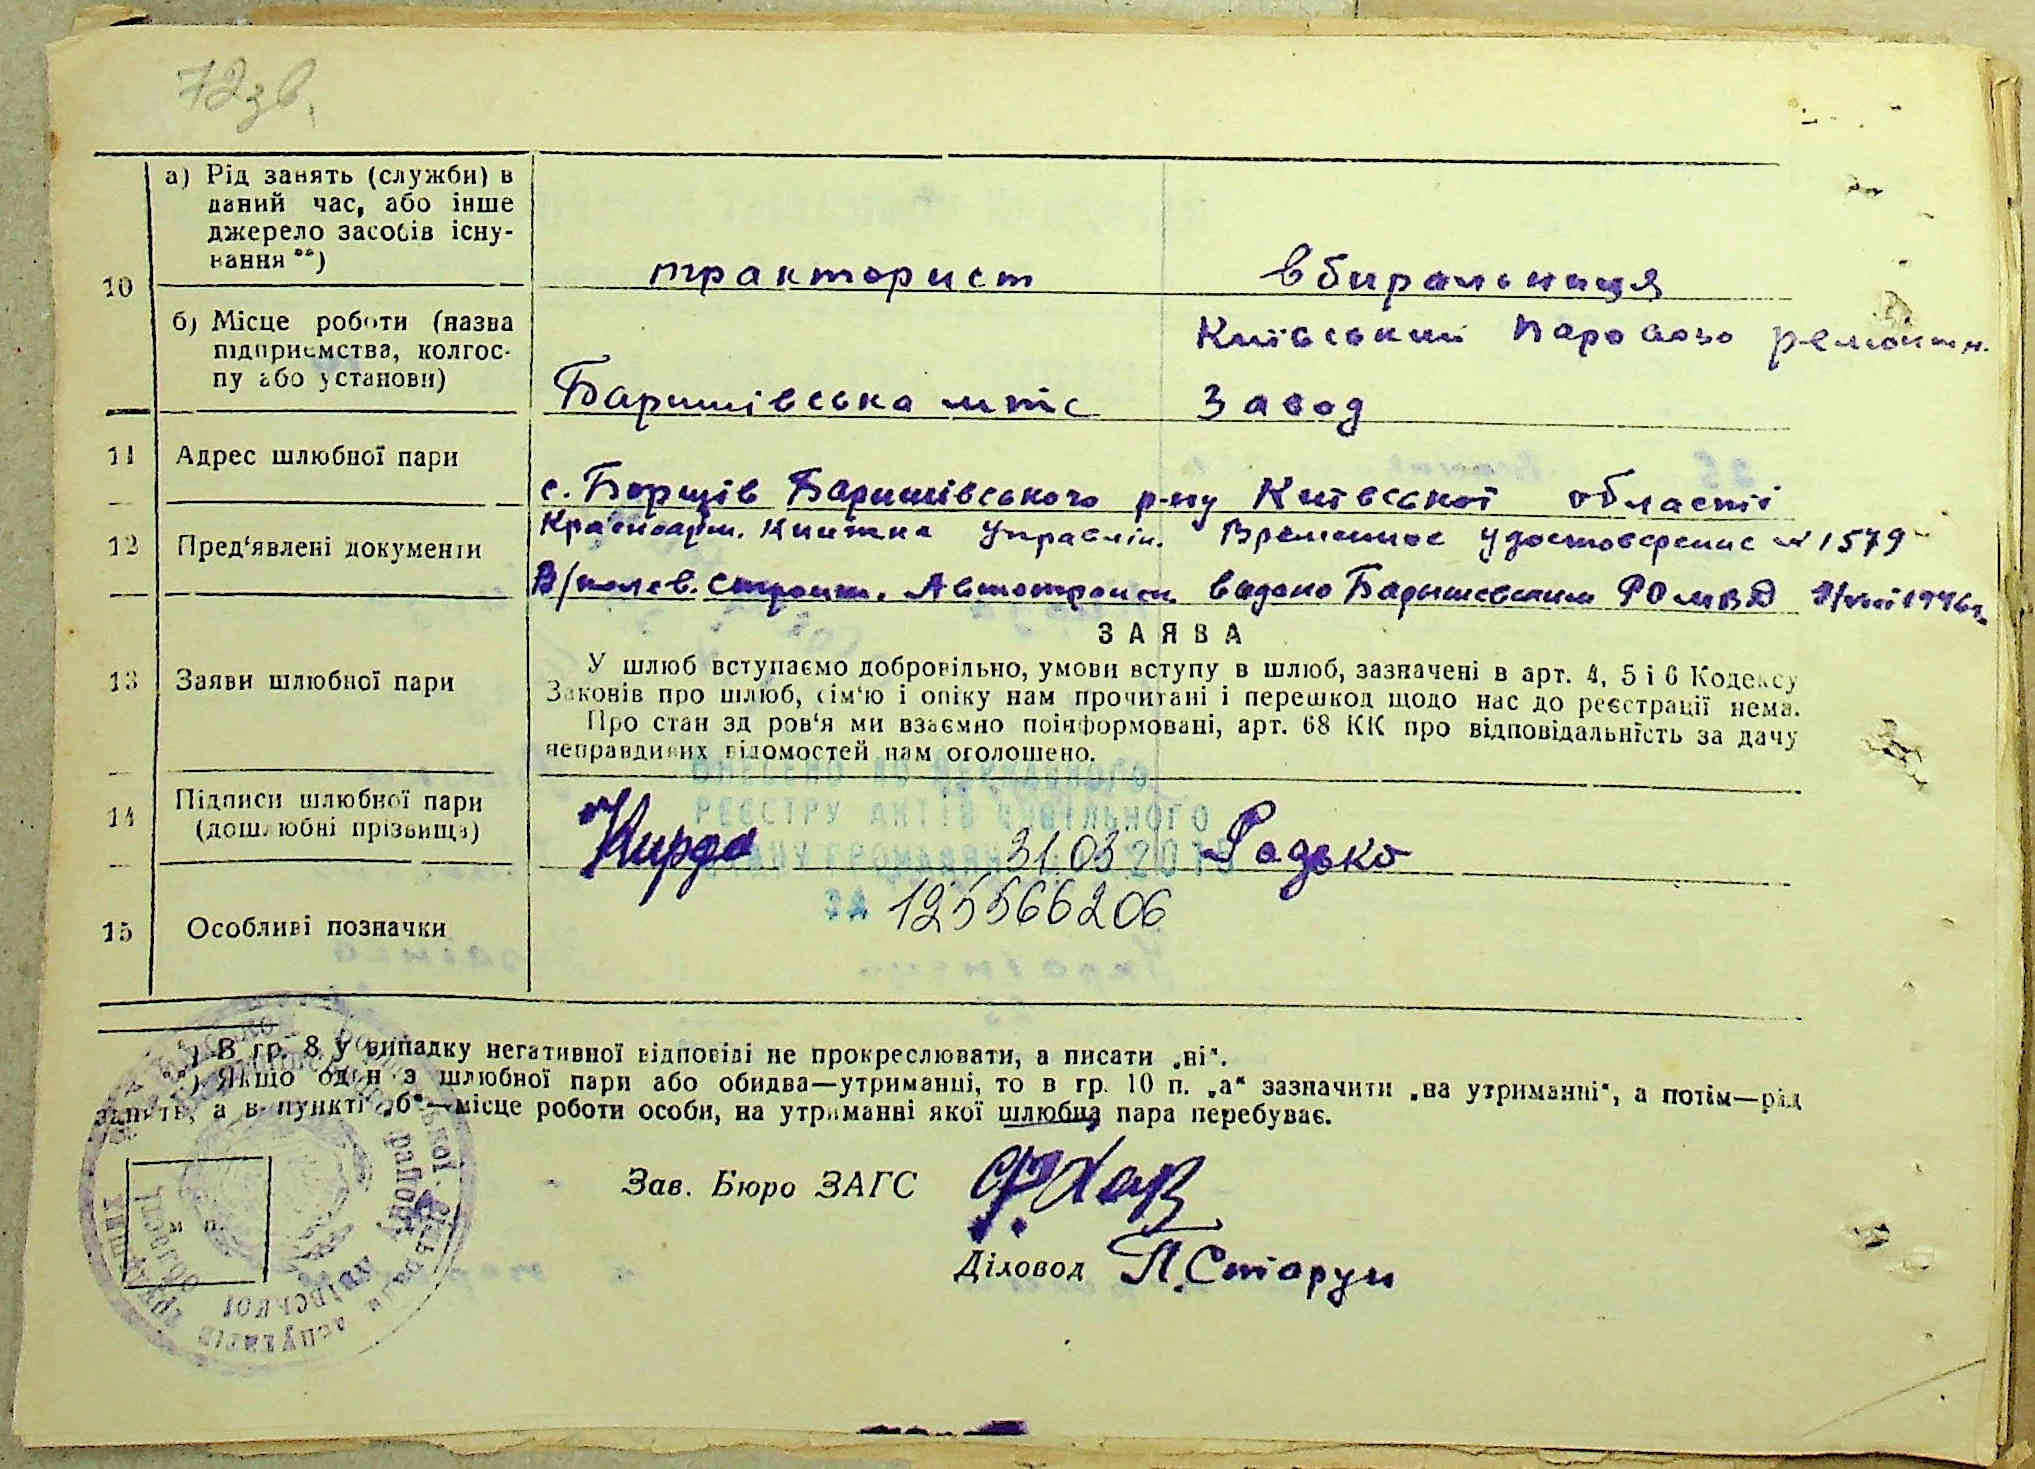 72зв.
10
а) Рід занять (служби) в
даний час, або інше
джерело засобів існу-
вання **)
тракторист
вбиральниця
б) Місце роботи (назва
підприємства, колгос-
пу або установи)
Баришівська мтс
Київський Паровозо ремонтн.
Завод
11
Адрес шлюбної пари
с. Борщів Баришівського р-ну Київської області
12
Пред‘явлені документи
Красноарм. книжка Управлін. Временное удостоверение № 1579
В/полев. строит. Автотрансп. видано Барышевским РО МВД 1946г.
13
Заяви шлюбної пари
ЗАЯВА
У шлюб вступаємо добровільно, умови вступу в шлюб, зазначені в арт. 4, 5 і 6 Кодексу
Законів про шлюб, сім‘ю і опіку нам прочитані і перешкод щодо нас до реєстрації нема.
Про стан здоров‘я ми взаємно поінформовані, арт. 68 КК про відповідальність за дачу
неправдивих відомостей нам оголошено.
ВНЕСЕНО ДО ДЕРЖАВНОГО
РЕЄСТРУ АКТІВ ЦИВІЛЬНОГО
СТАНУ ГРОМАДЯН 31.03.2015
ЗА 125566206
14
Підписи шлюбної пари
(дошлюбні прізвища)
Кирда
Радько
15
Особливі позначки
*) В гр. 8 у випадку негативної відповіді не прокреслювати, а писати „ні“.
**) Якщо один з шлюбної пари або обидва—утриманці, то в гр. 10 п. „а“ зазначити „на утриманні“, а потім—рід
занять, а в пункті „б“—місце роботи особи, на утриманні якої шлюбна пара перебуває.
м п.
Зав. Бюро ЗАГС
Діловод П. Старун